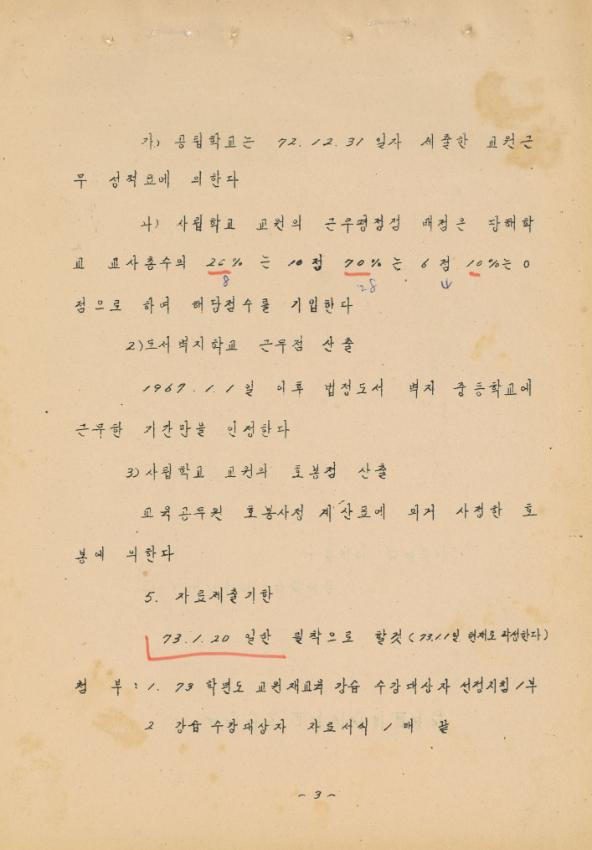 가) 공립학교는 72.12.31 일자 제출한 교원근
무 성적표에 의한다
나) 사립학교 교원의 근무평정점 배정은 당해학
교 교사총수의 20% 는 10점 70%는 6점 10%는 0
8 28 4
점으로 하여 해당점수를 기입한다
2)도서벽지학교 근무점 산출
1967.1.1일 이후 법정도서 벽지 중등학교에
근무한 기간만을 인정한다
3)사립학교 교원의 호봉점 산출
교육공무원 호봉사정 계산표에 의거 사정한 호
봉에 의한다
5. 자료제출기한
73.1.20 일한 필착으로 할것(73.1.1일 현재로 작성한다)
첨 부:1. 73 학년도 교원재교육 강습 수강대상자 선정지침 1부
2 강습 수강대상자 자료서식 1매 끝
-3-